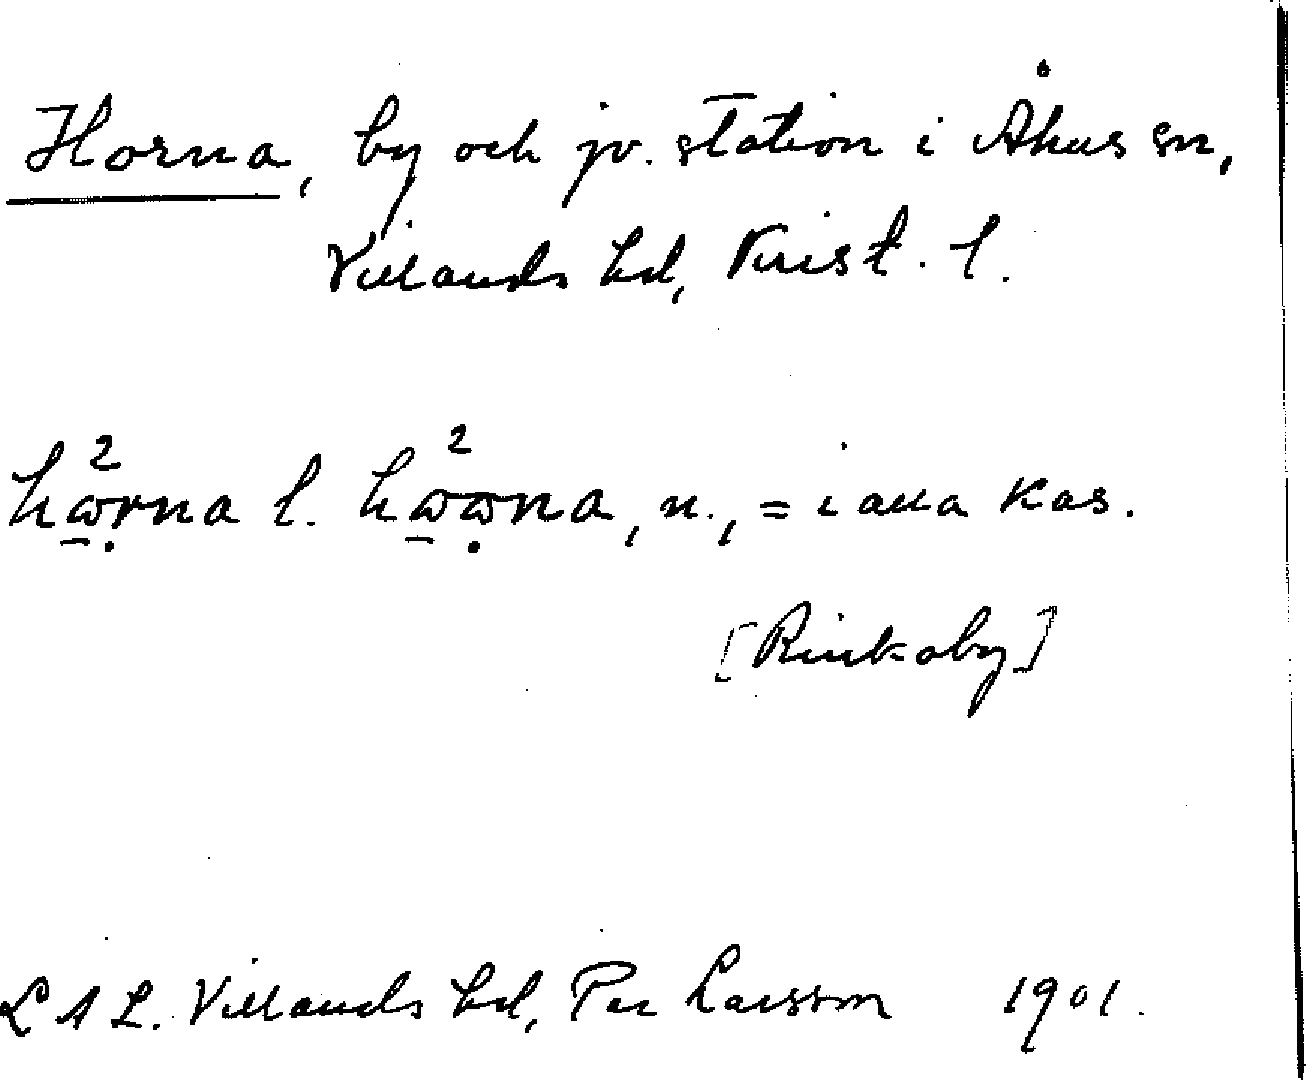 Horna, by och jv. station i Åhus sn,
Villands hd, Krist. l.
hω̱²ṛna l. hω̱²ω̣na, n., = i alla kas.
[Rinkaby]
LAL. Villands hd, Per Larsson 1901.